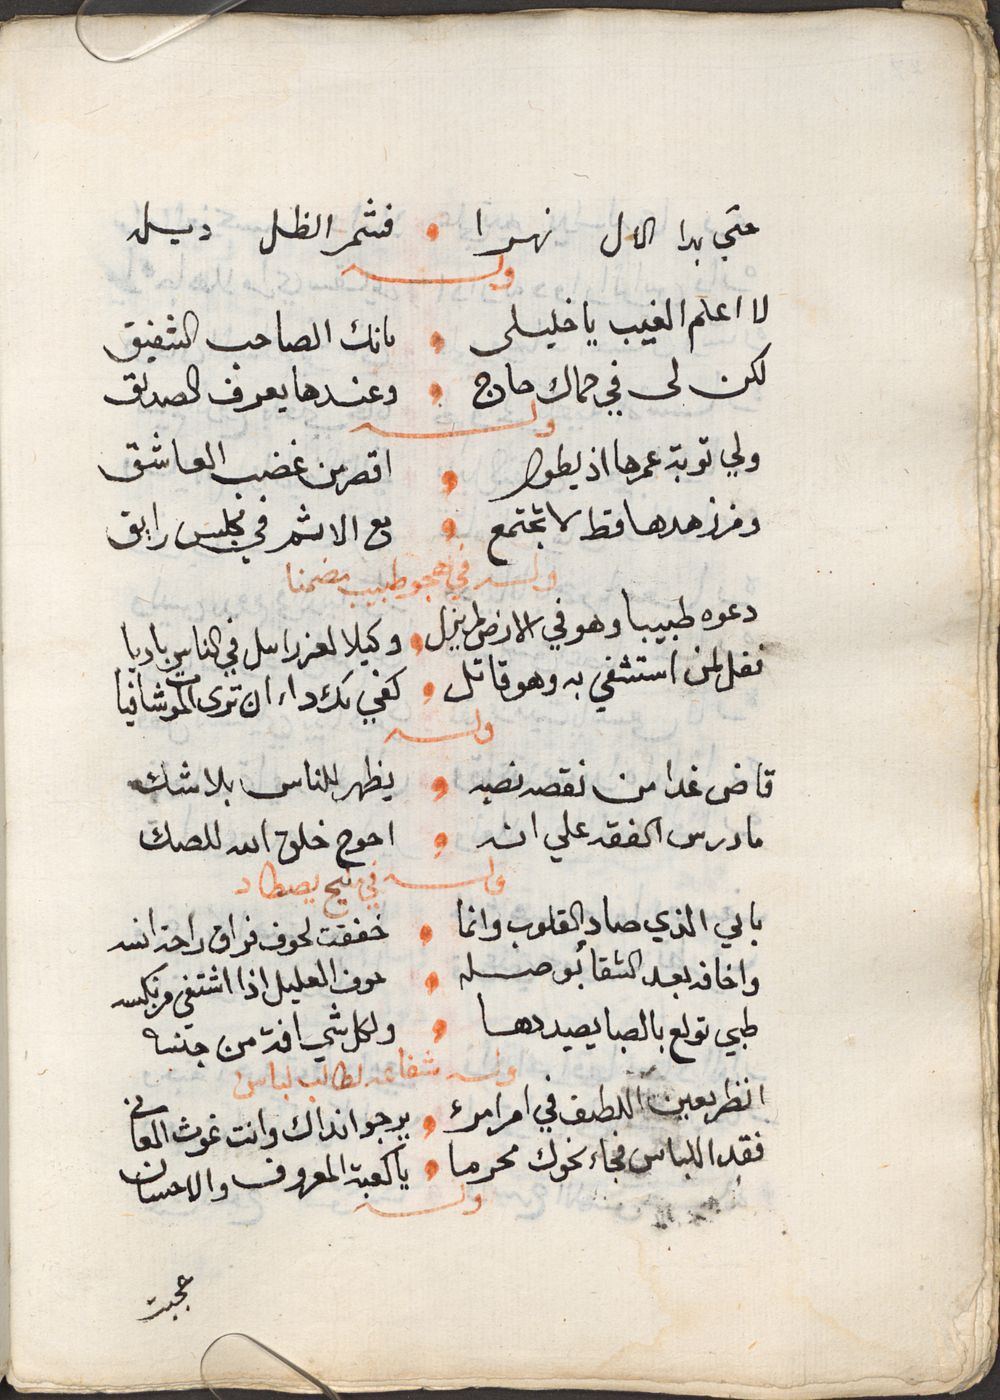 حتي بدا الال نهرا • فشمر الظل ذيله
وله
لا اعلم الغيب يا خليلى • بانك الصاحب الشفيق
لكن لى في حماك حاج • وعندها يعرف الصديق
وله
ولي توبة عمرها اذ يطول • اقصر من غضب العاشق
ومن زهدها قط لا تجتمع • مع الاثم في مجلس رايق
وله في هجو طبيب مضمنا
دعوه طبيبا وهو في الارض لم يزل • وكيلا لعزراسل في الناس باديا
فقل لمن استشفي به وهو قاتل • كفي بك داء ان ترى الموت شافيا
وله
قاضى غدا من نقصه نصبه • يظهر للناس بلا شك
ما درس الفقه علي انه • احوج خلق الله للصك
وله في مليح يصطاد
بابي الذي صاد القلوب وانما • خفقت لخوف فراق راحة انسه
واخافه بعد الشقا بوصله • خوف العليل اذا اشتفي من نكسه
ظبي تولع بالصبا يصيدها • ولكل شي افة من جنسه
وله شفاعه لطالب لباس
انظر بعين اللطف في امر امرء • يرجو نداك وانت غوث العاني
فقد اللباس فجاء نحوك محرما • يا كعبة المعروف والاحسان
وله
عجبت